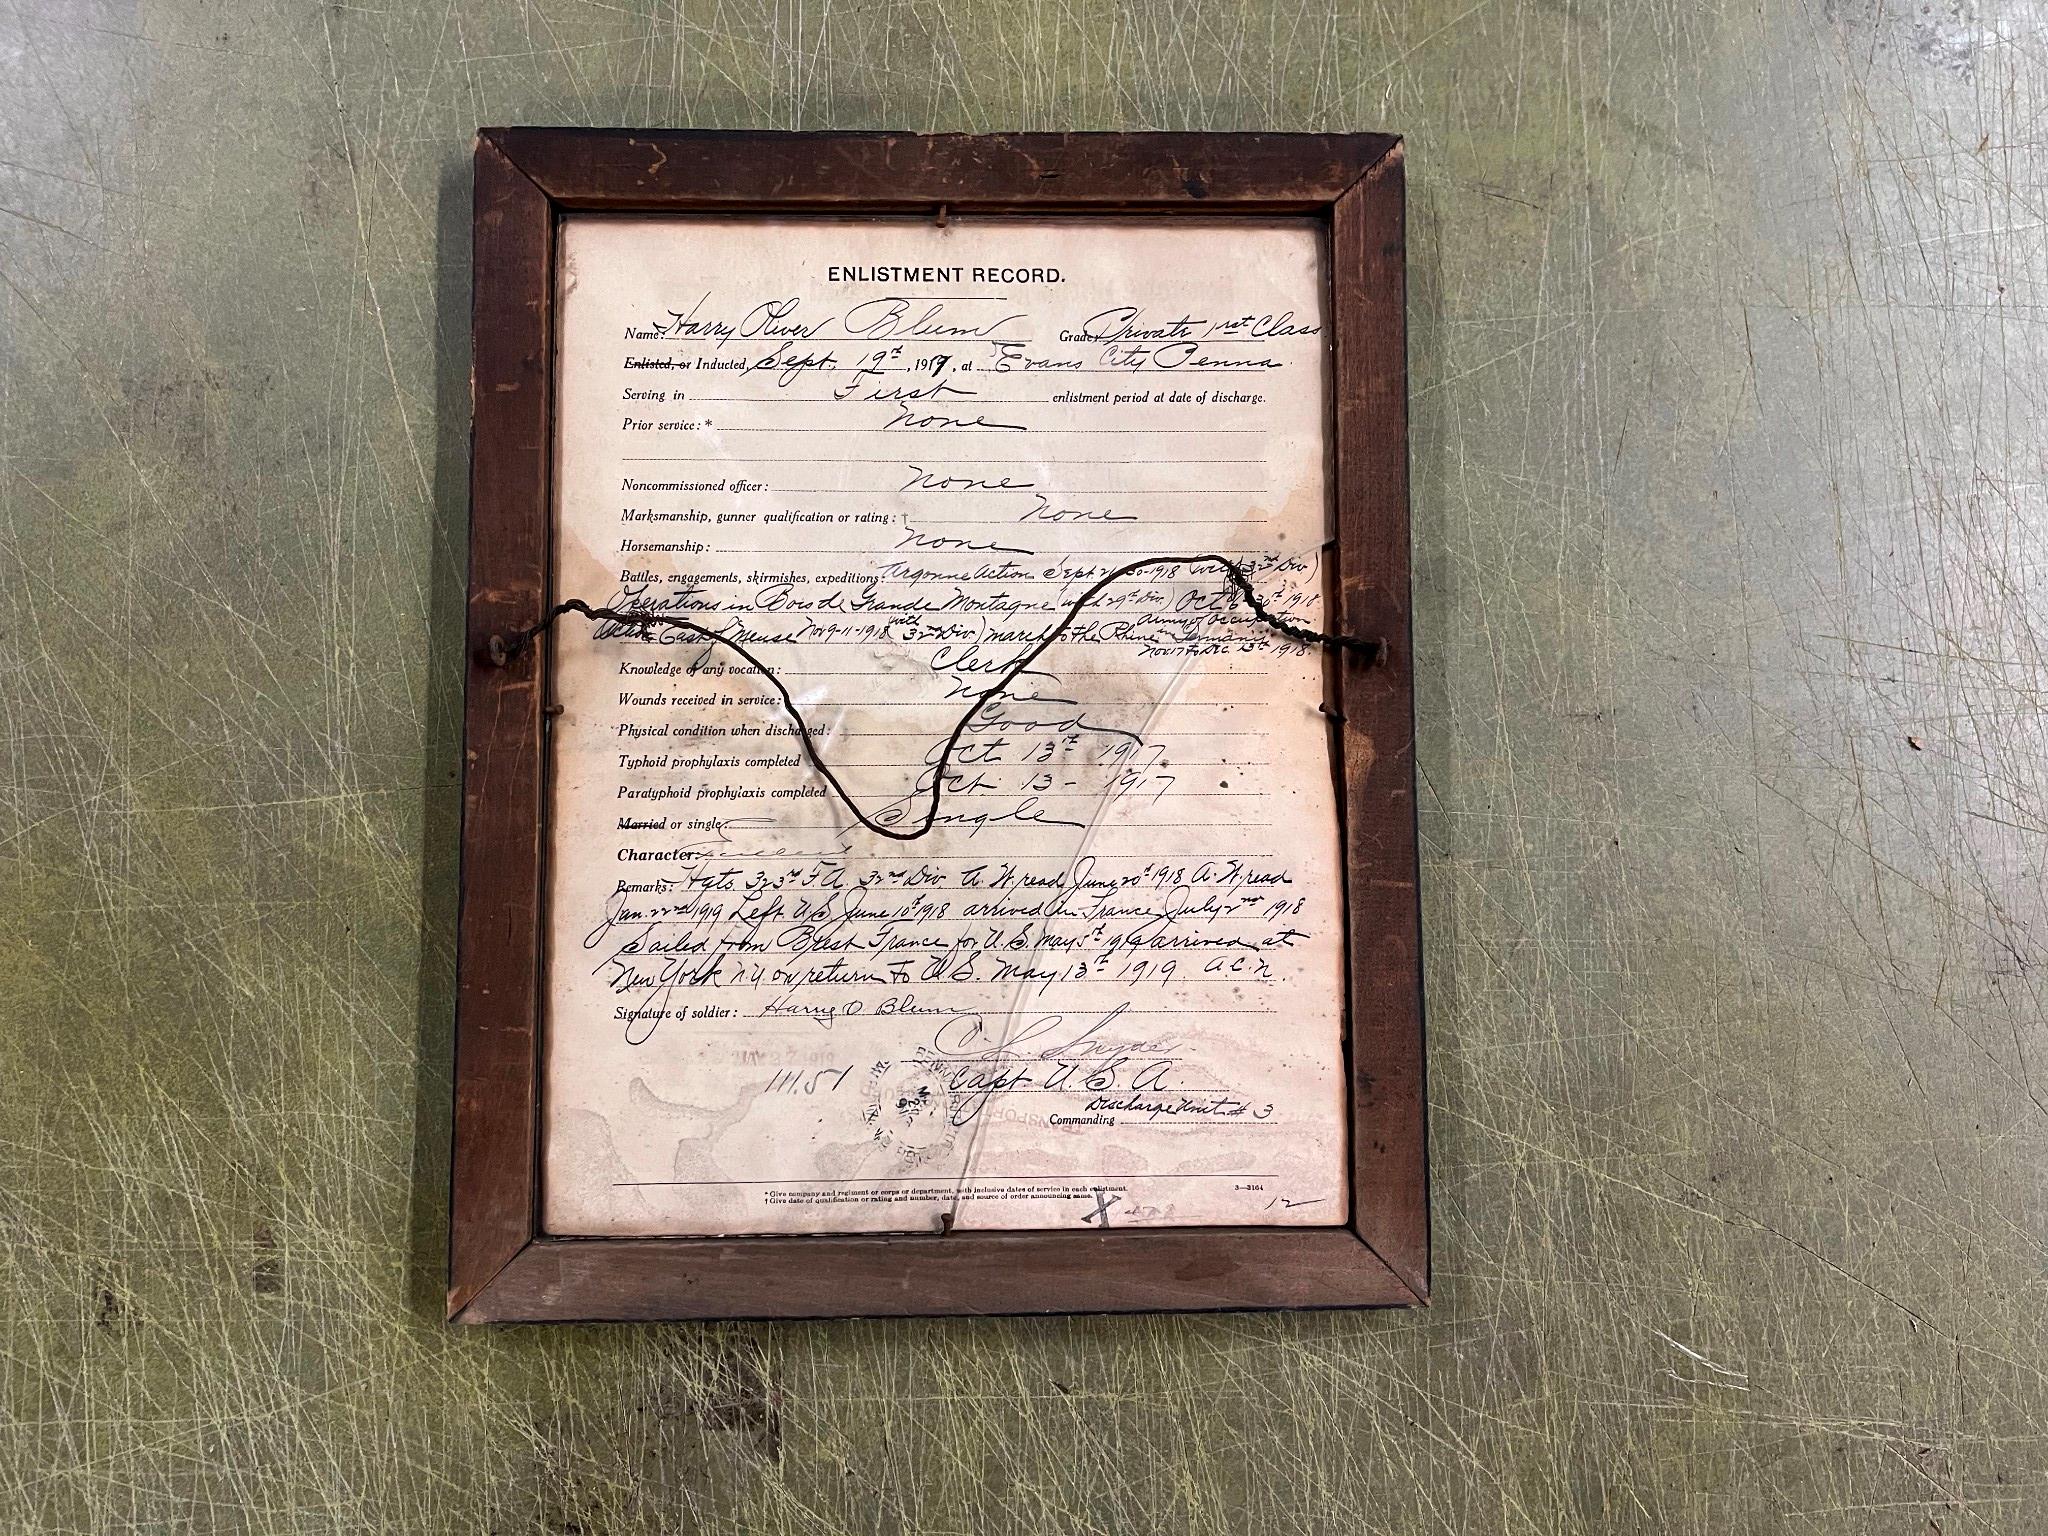 ENLISTMENT RECORD.
Name: Harry Oliver Blum Grade: Private 1rst Class
Enlisted, or Inducted, Sept. 19th, 1917, at Evans City Penna.
Serving in First enlistment period at date of discharge.
Prior service: * None
Noncommissioned officer: None
Marksmanship, gunner qualification or rating: † None
Horsemanship: None
Battles, engagements, skirmishes, expeditions: Argonne Action Sept. 30-1918 (with 32nd Div)
Operations in Bois de Grande Montagne with 29th Div.) Oct 30th 1918
Action East of Meuse Nov 9-11-1918 (with 32nd Div) march to the Rhine in Germany Army of Occupation
Nov 17 to Dec 13th 1918.
Knowledge of any vocation: Clerk
Wounds received in service: None
Physical condition when discharged: Good
Typhoid prophylaxis completed Oct 13th 1917
Paratyphoid prophylaxis completed Oct 13 - 1917
Married or single: Single
Character: Excellent
Remarks: Hqts. 323rd F.A. 32nd Div. A. W. read June 20th 1918 A. W. read
Jan. 22nd 1919 Left U.S. June 10th 1918 arrived in France July 2nd 1918
Sailed from Brest France for U.S. May 5th 1919 arrived at
New York N.Y. on return to U.S. May 13th 1919. A.C.N.
Signature of soldier: Harry O Blum
C. L. Snyder
111.51 Capt. U.S.A.
Discharge Unit # 3
Commanding
* Give company and regiment or corps or department, with inclusive dates of service in each enlistment.
† Give date of qualification or rating and number, date, and source of order announcing same.
3—3164
X
12